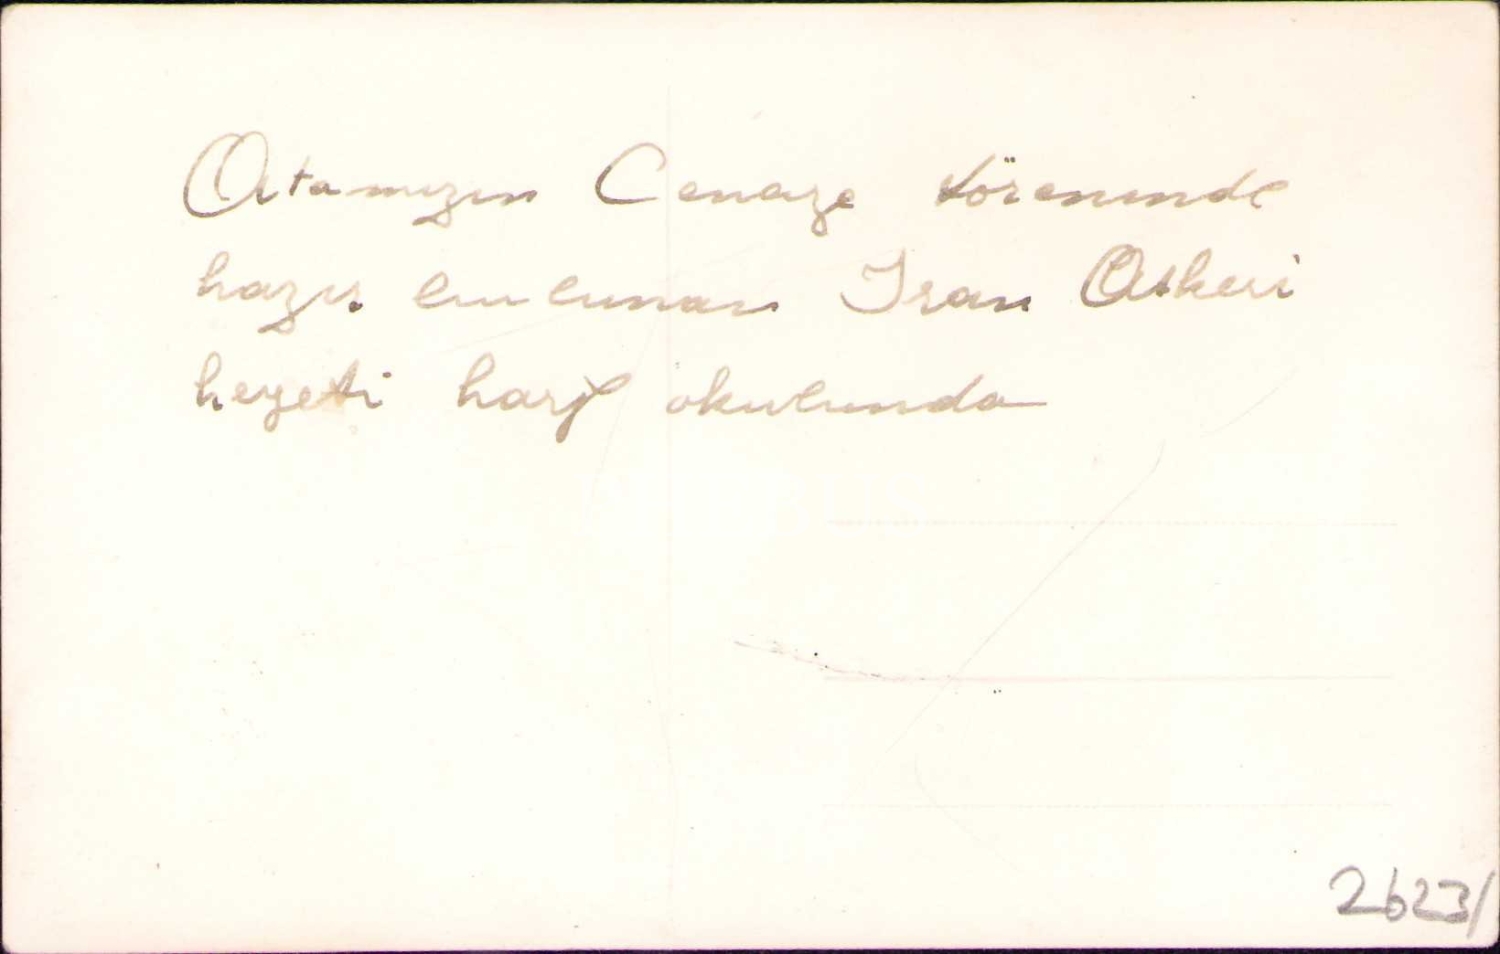 Atamızın Cenaze töreninde
hazır bulunan İran Askeri
heyeti harp okulunda
2623/